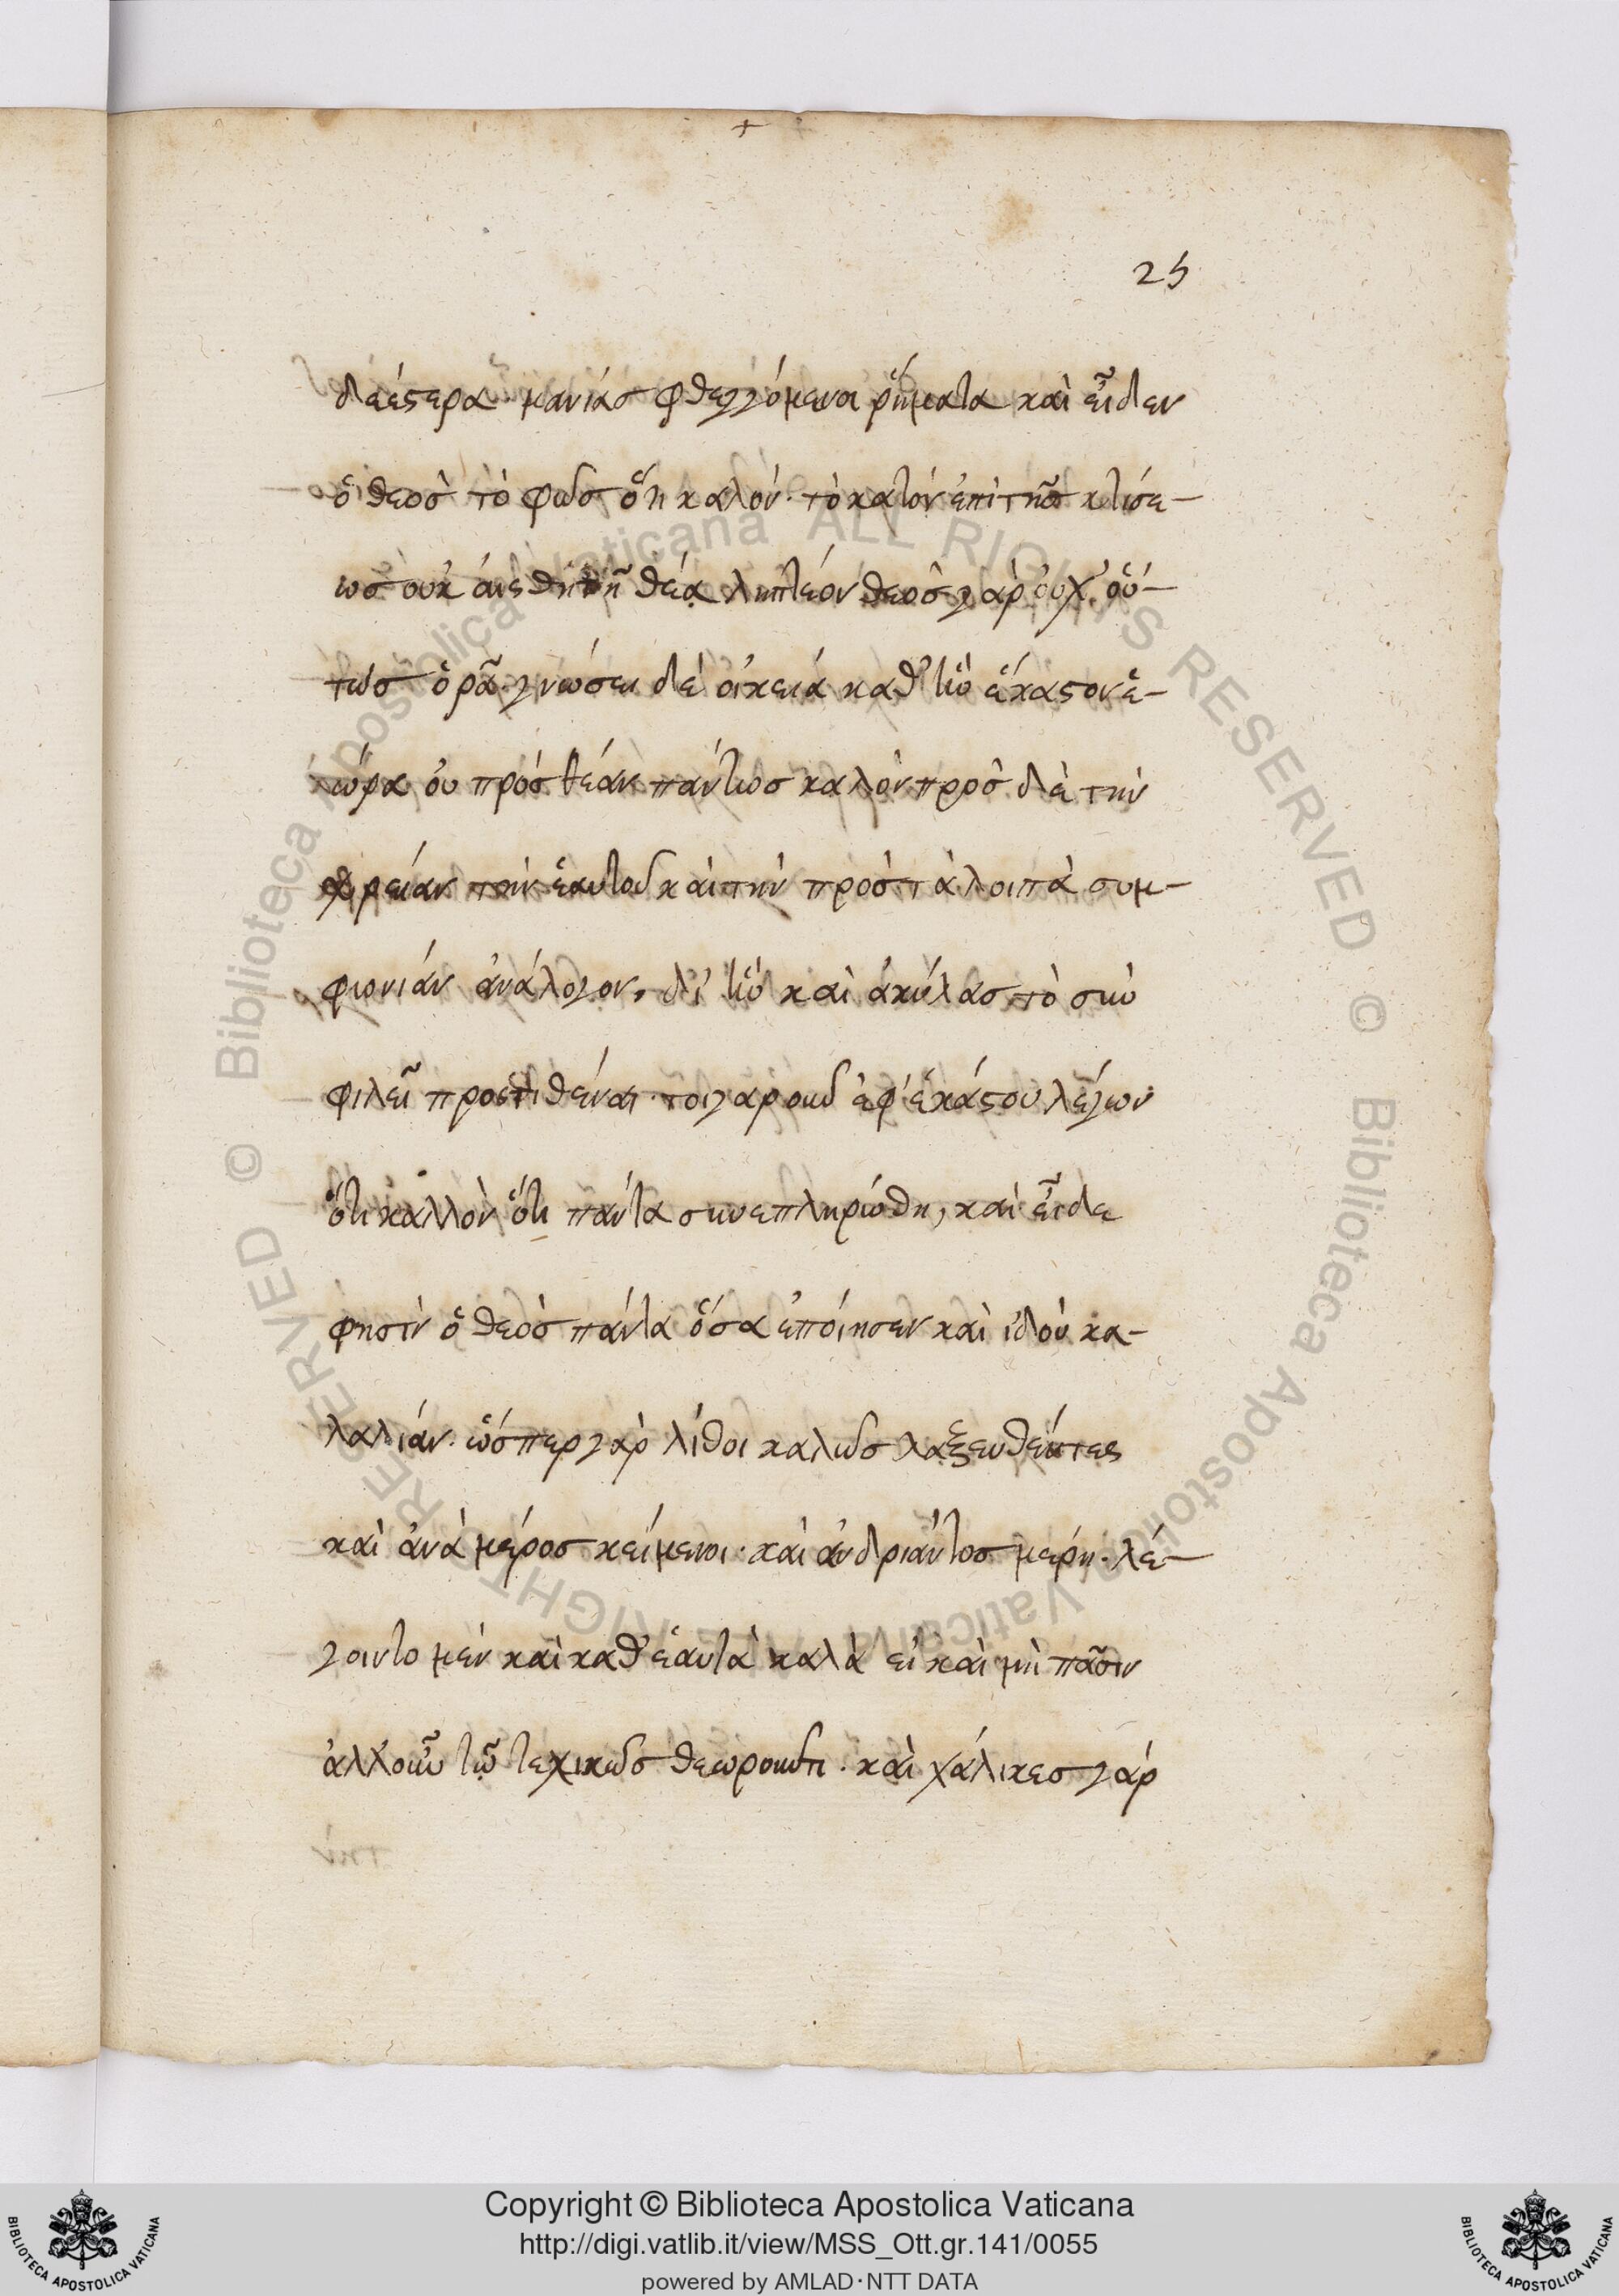 25
δεέστερα μανίασ φθεγγόμενοι ῥήματα καὶ εἶδεν
ὁ θεοσ τὸ φωσ ὅτι καλόν· τὸ καλὸν ἐπὶ τῆσ κτίσε-
ωσ ουκ θέα ληπτέον θεὸσ γὰρ ουχ οὕ-
τωσ ὁρᾶ· γνώσει δὲ οἰκεία καθ' ἣν ἕκαστον ἑ-
ώρα οὐ πρὸσ θέαν πάντωσ καλὸν πρὸσ δὲ τὴν
χρείαν τὴν ἑαυτοῦ καὶ τὴν πρὸσ τὰ λοιπὰ συμ-
φωνιάν ἀνάλογον, δι' ἣν καὶ ἀκύλασ τὸ σὺν
φιλεῖ προστιθέναι· τοιγαροῦν ἐφ' ἑκάστου λέγων
ὅτι καλλὸν ὅτι πάντα συνεπληρώθη, καὶ εἶδε
φησὶν ὁ θεὸσ πάντα ὅσα ἐποίησεν καὶ ἰδοὺ κα-
λαλιάν. ὥσπερ γὰρ λίθοι καλωσ λαξευθέντες
καὶ ἀνὰ μέροσ κείμενοι· καὶ ἀνδριάντοσ μέρη· λέ-
γοιντο μὲν καὶ καθ' ἑαυτὰ καλὰ εἰ καὶ μὴ πᾶσιν
ἀλλ' οὖν τῶ τεχικωσ θεωροῦντι· καὶ χάλικεσ γὰρ
Copyright © Biblioteca Apostolica Vaticana
http://digi.vatlib.it/view/MSS_Ott.gr.141/0055
powered by AMLAD·NTT DATA
BIBLIOTECA APOSTOLICA VATICANA
BIBLIOTECA APOSTOLICA VATICANA
© Biblioteca Apostolica Vaticana ALL RIGHTS RESERVED © Biblioteca Apostolica Vaticana ALL RIGHTS RESERVED